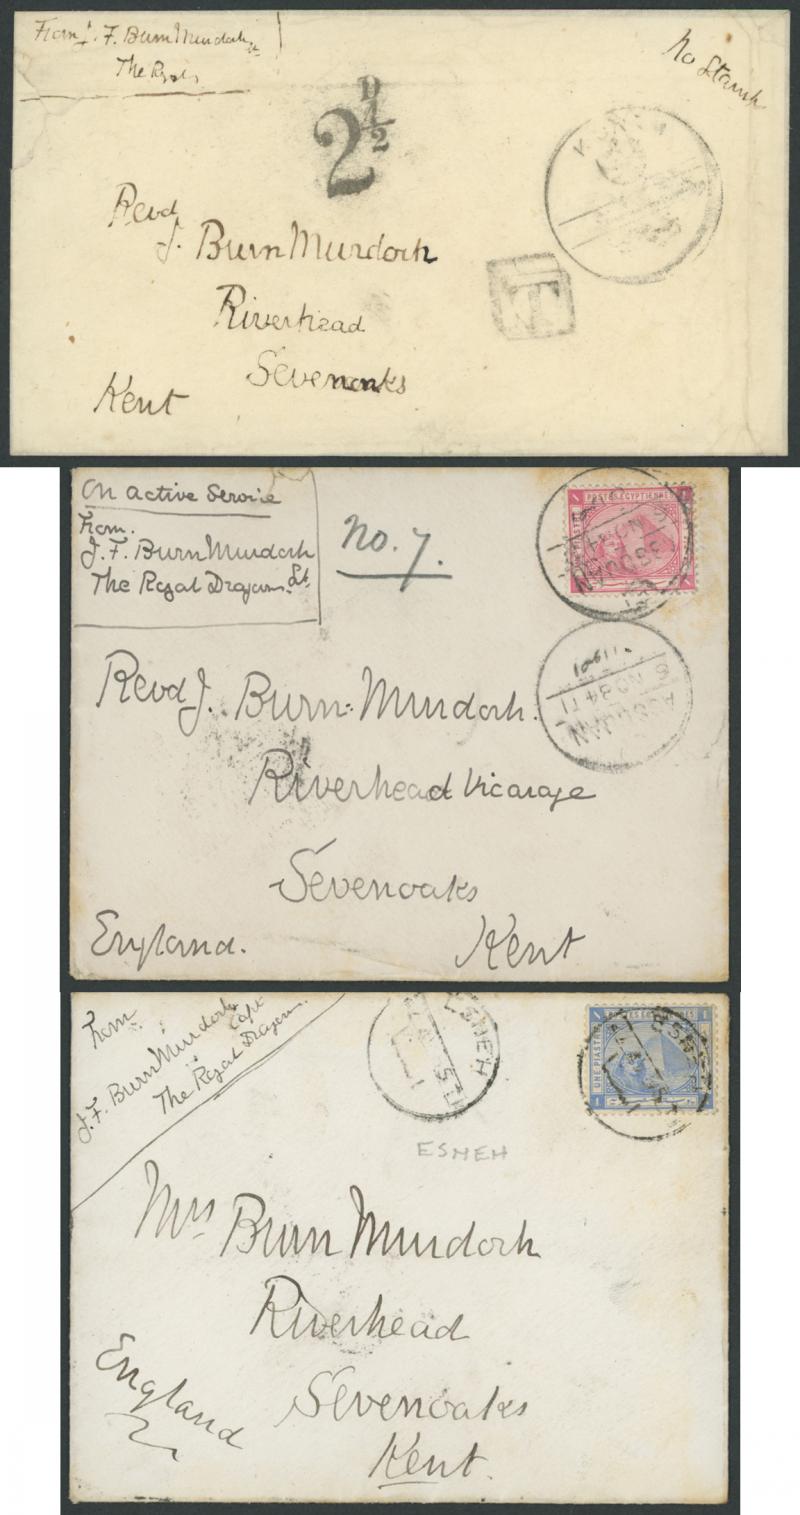 From J. F. Burn Murdoch
The Royals
No Stamp
2 D 1/2
Revd
J. Burn Murdoch
Riverhead
Sevenoaks
Kent
T
On active service
From.
J. F. Burn Murdoch Lt.
The Royal Dragoons
No. 7.
POSTES EGYPTIENNES
ASSOUAN
ASSOUAN
NO 84 T1
Revd J. Burn-Murdoch.
Riverhead Vicarage
Sevenoaks
England.
Kent
From
J. F. Burn Murdoch Capt
The Royal Dragoons.
ESNEH
POSTES EGYPTIENNES
UNE PIASTRE
ESNEH
ESNEH
Mrs Burn Murdoch
Riverhead
England
Sevenoaks
Kent.